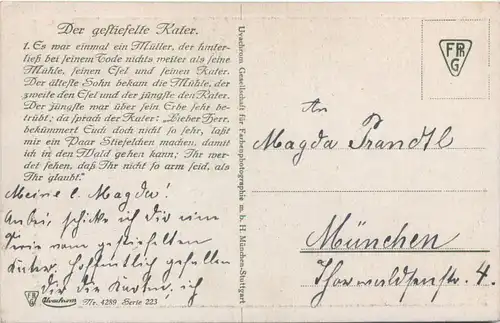 Der gestiefelte Kater.
1. Es war einmal ein Müller, der hinter-
ließ bei seinem Tode nichts weiter als seine
Mühle, seinen Esel und seinen Kater.
Der älteste Sohn bekam die Mühle, der
zweite den Esel und der jüngste den Kater.
Der jüngste war über sein Erbe sehr be-
trübt; da sprach der Kater: „Lieber Herr,
bekümmert Euch doch nicht so sehr, laßt
mir ein Paar Stiefelchen machen, damit
ich in den Wald gehen kann; Ihr wer-
det sehen, daß Ihr nicht so arm seid, als
Ihr glaubt."
Meine l. Magda!
Anbei schicke ich dir eine
Serie vom gestiefelten
Kater. Hoffentlich gefallen
dir die Karten, ich
FPG Uvachrom Nr. 4289 Serie 223
Uvachrom Gesellschaft für Farbenphotographie m. b. H. München-Stuttgart
FPG
An
Magda Prandtl
München
Thorwaldsenstr. 4.